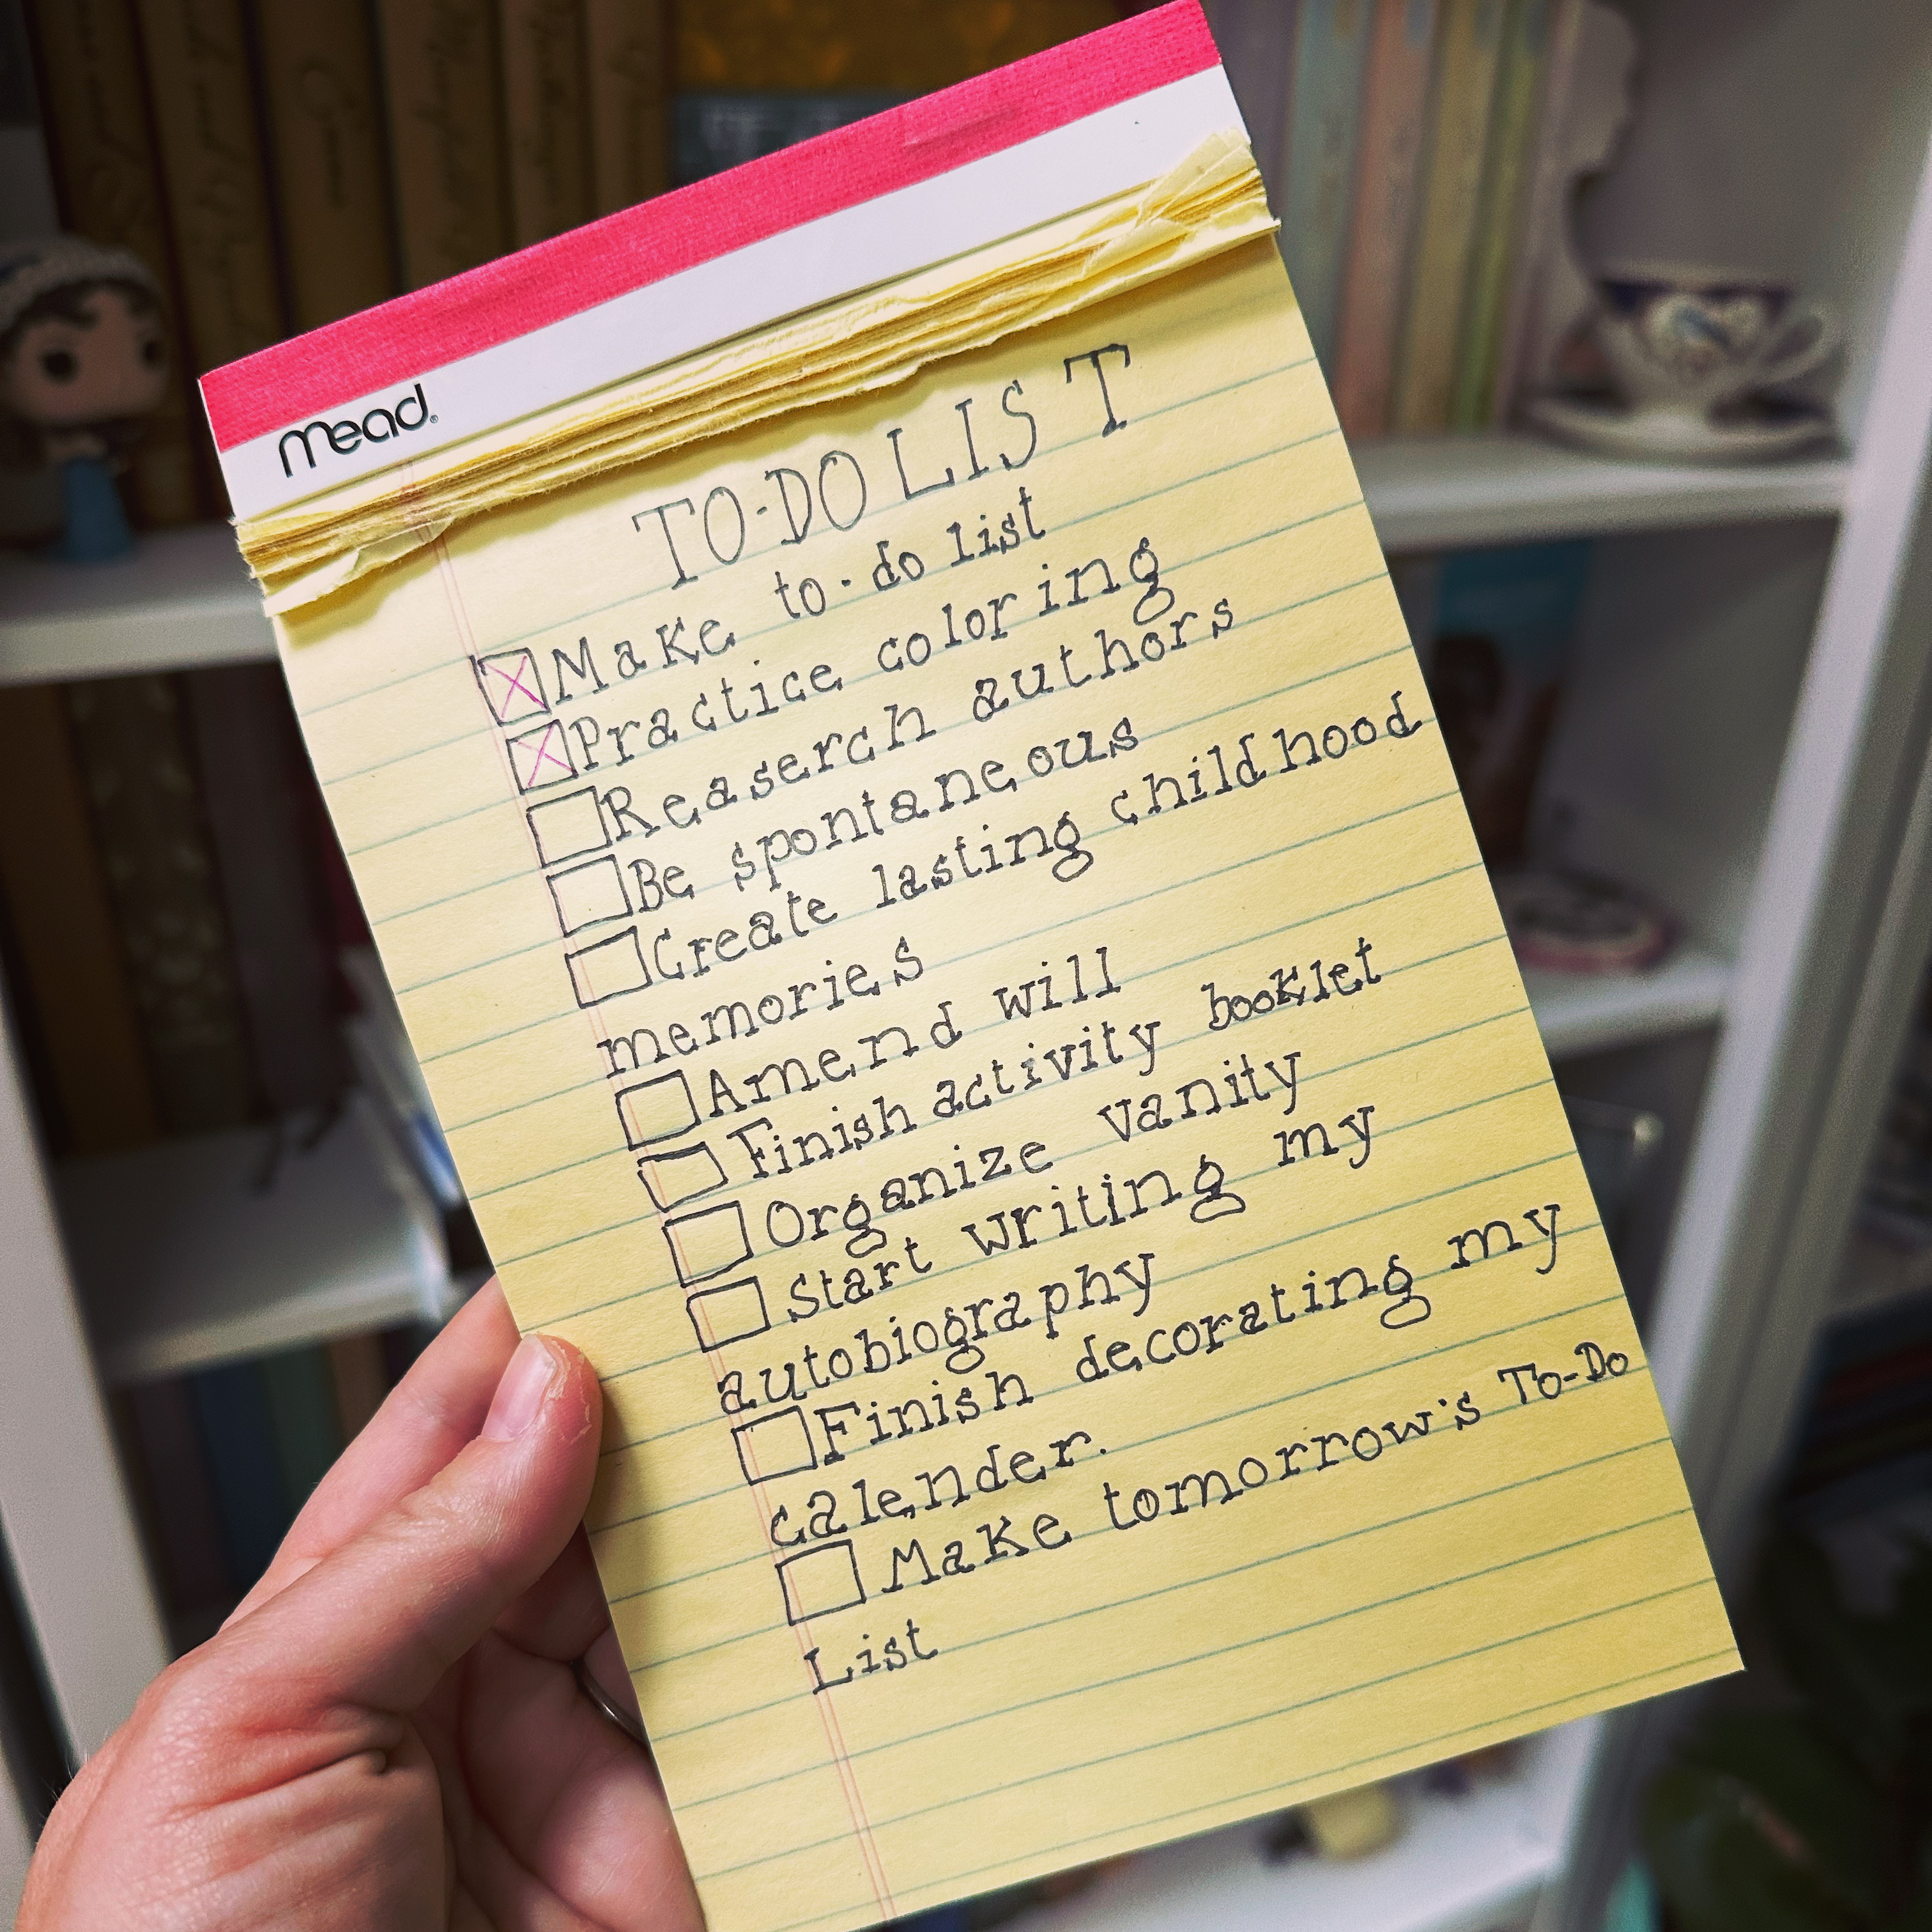 mead
TO-DO LIST
Make to-do list
Practice coloring
Reaserch authors
Be spontaneous
Create lasting childhood
memories
Amend will
Finish activity booklet
Organize vanity
Start writing my
autobiography
Finish decorating my
calender.
Make tomorrow's To-Do
List